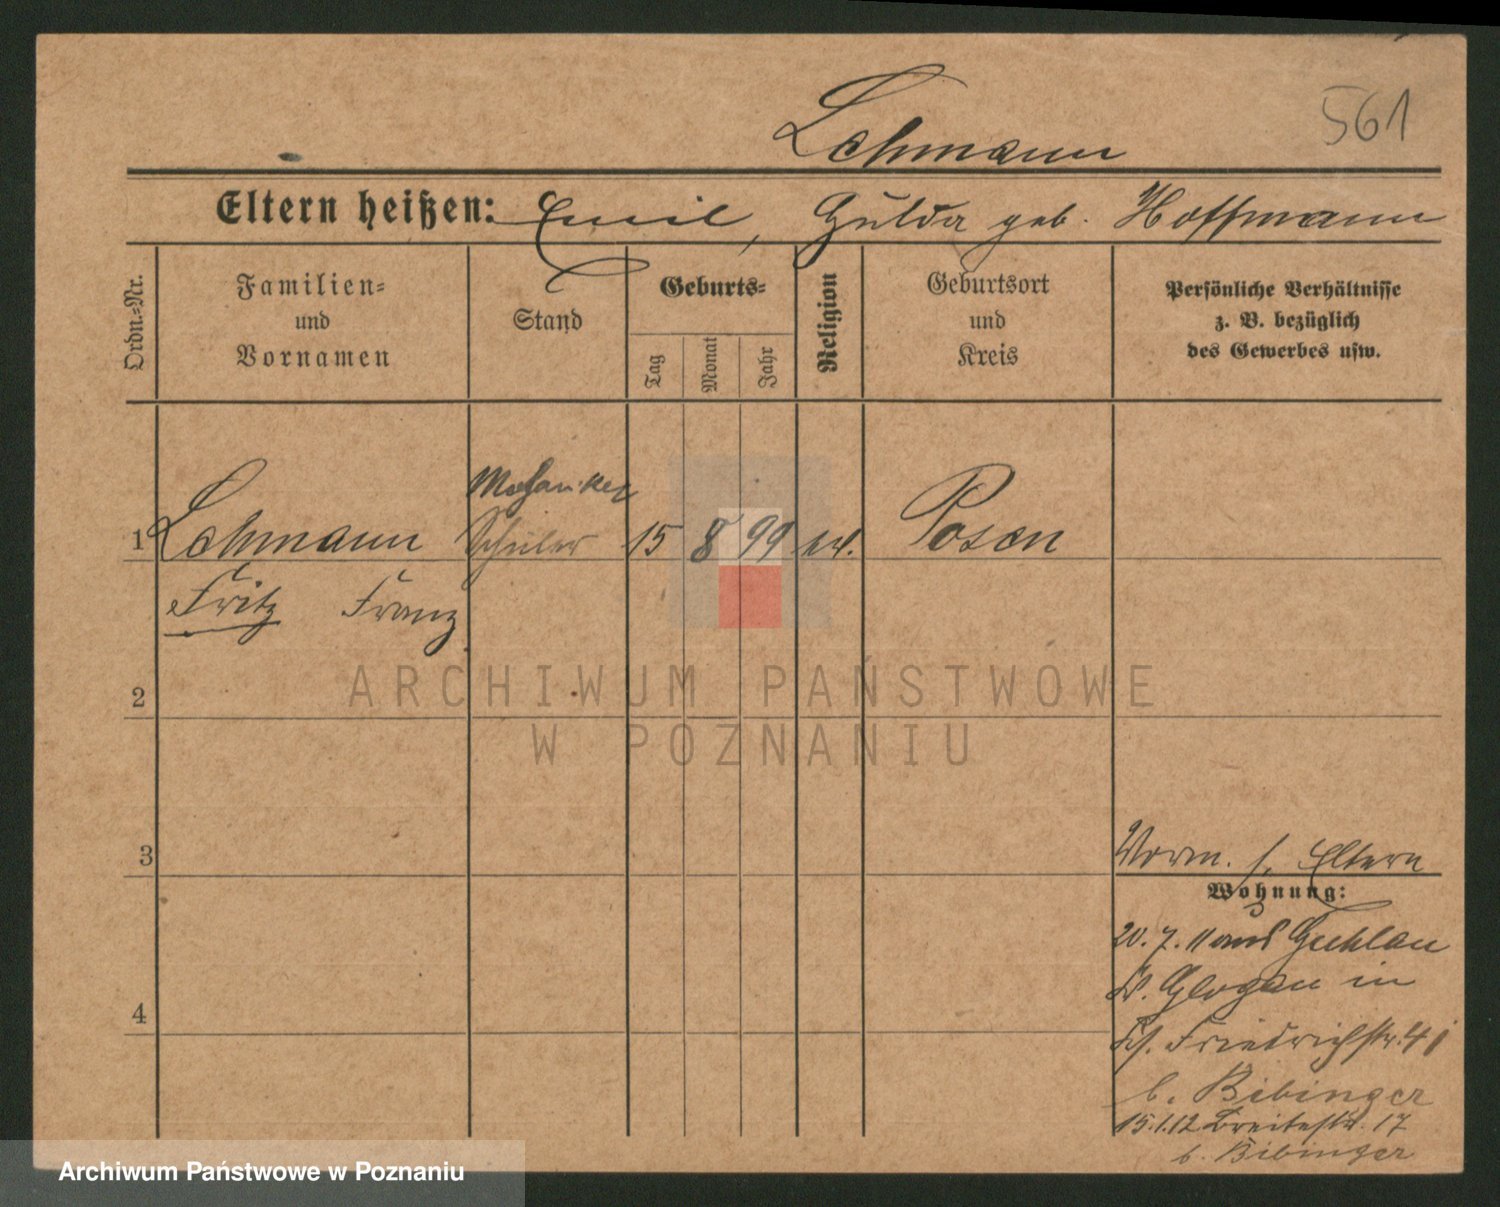 561
Lehmann
Eltern heißen: Emil, Hulda geb. Hoffmann
Ordn.-Nr.
Familien-
und
Vornamen
Stand
Geburts-
Tag
Monat
Jahr
Religion
Geburtsort
und
Kreis
Persönliche Verhältnisse
z. B. bezüglich
des Gewerbes usw.
Mechaniker
1 Lehmann Schüler 15 8 99 ev. Posen
Fritz Franz
ARCHIWUM PAŃSTWOWE
W POZNANIU
2
3
4
Vorm. s. Eltern
Wohnung:
20. 7. 11 aus Guhlau
Kr. Glogau in
Friedrichstr. 4
b. Bibinger
15.1.12 Breitestr. 17
b. Bibinger
Archiwum Państwowe w Poznaniu